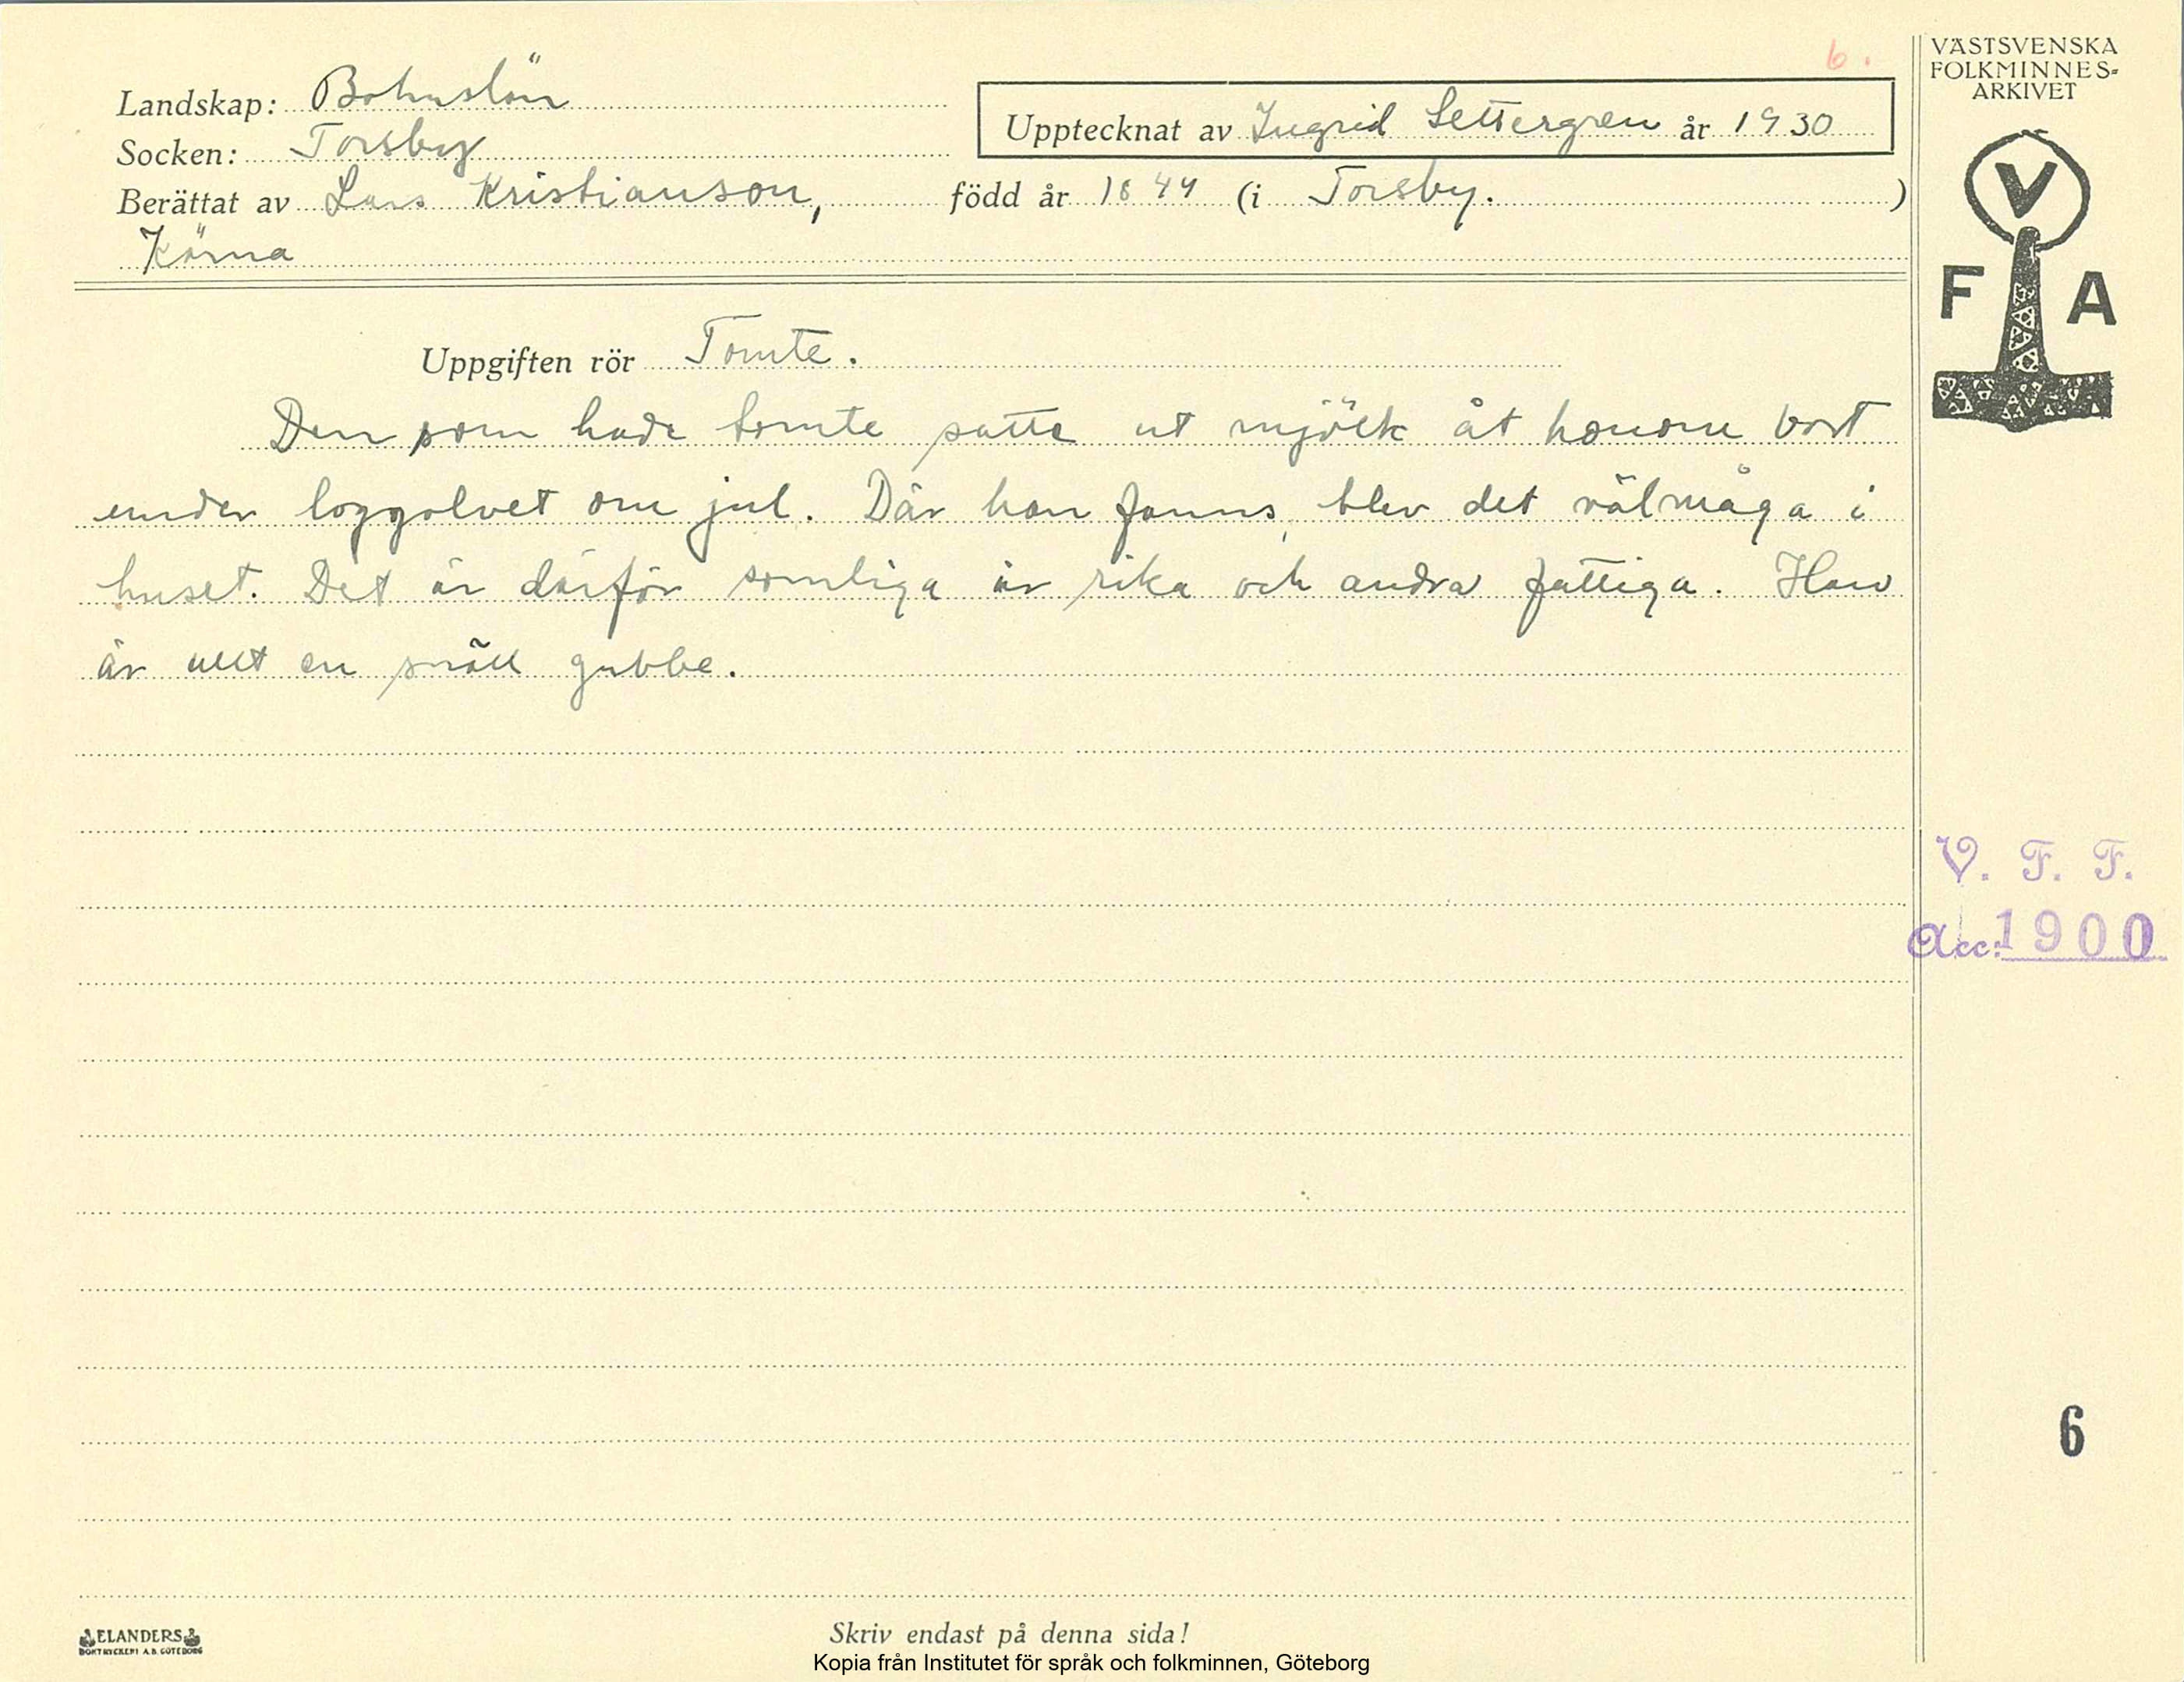 6.
Landskap: Bohuslän
Socken: Torsby
Upptecknat av Ingrid Settergren år 1930
Berättat av Lars Kristianson, född år 1844 (i Torsby. )
Kärna
Uppgiften rör Tomte.
Den som hade tomte satte ut mjölk åt honom bort
under loggolvet om jul. Där han fanns, blev det välmåga i
huset. Det är därför somliga är rika och andra fattiga. Han
är allt en snäll gubbe.
VÄSTSVENSKA
FOLKMINNES-
ARKIVET
V
F A
V. F. F.
Acc: 1900
6
ELANDERS
BOKTRYCKERI A.B. GÖTEBORG
Skriv endast på denna sida!
Kopia från Institutet för språk och folkminnen, Göteborg